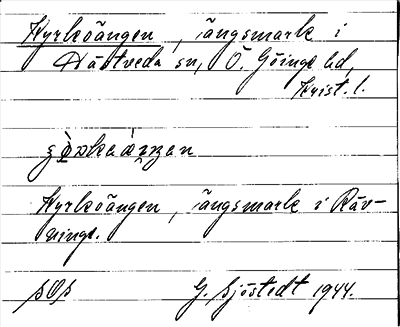 Kyrkoängen, ängsmark i
Hästveda sn, Ö. Göinge hd,
Krist. l.
Kyrkoängen, ängsmark i Räv-
ninge.
G. Sjöstedt 1944.